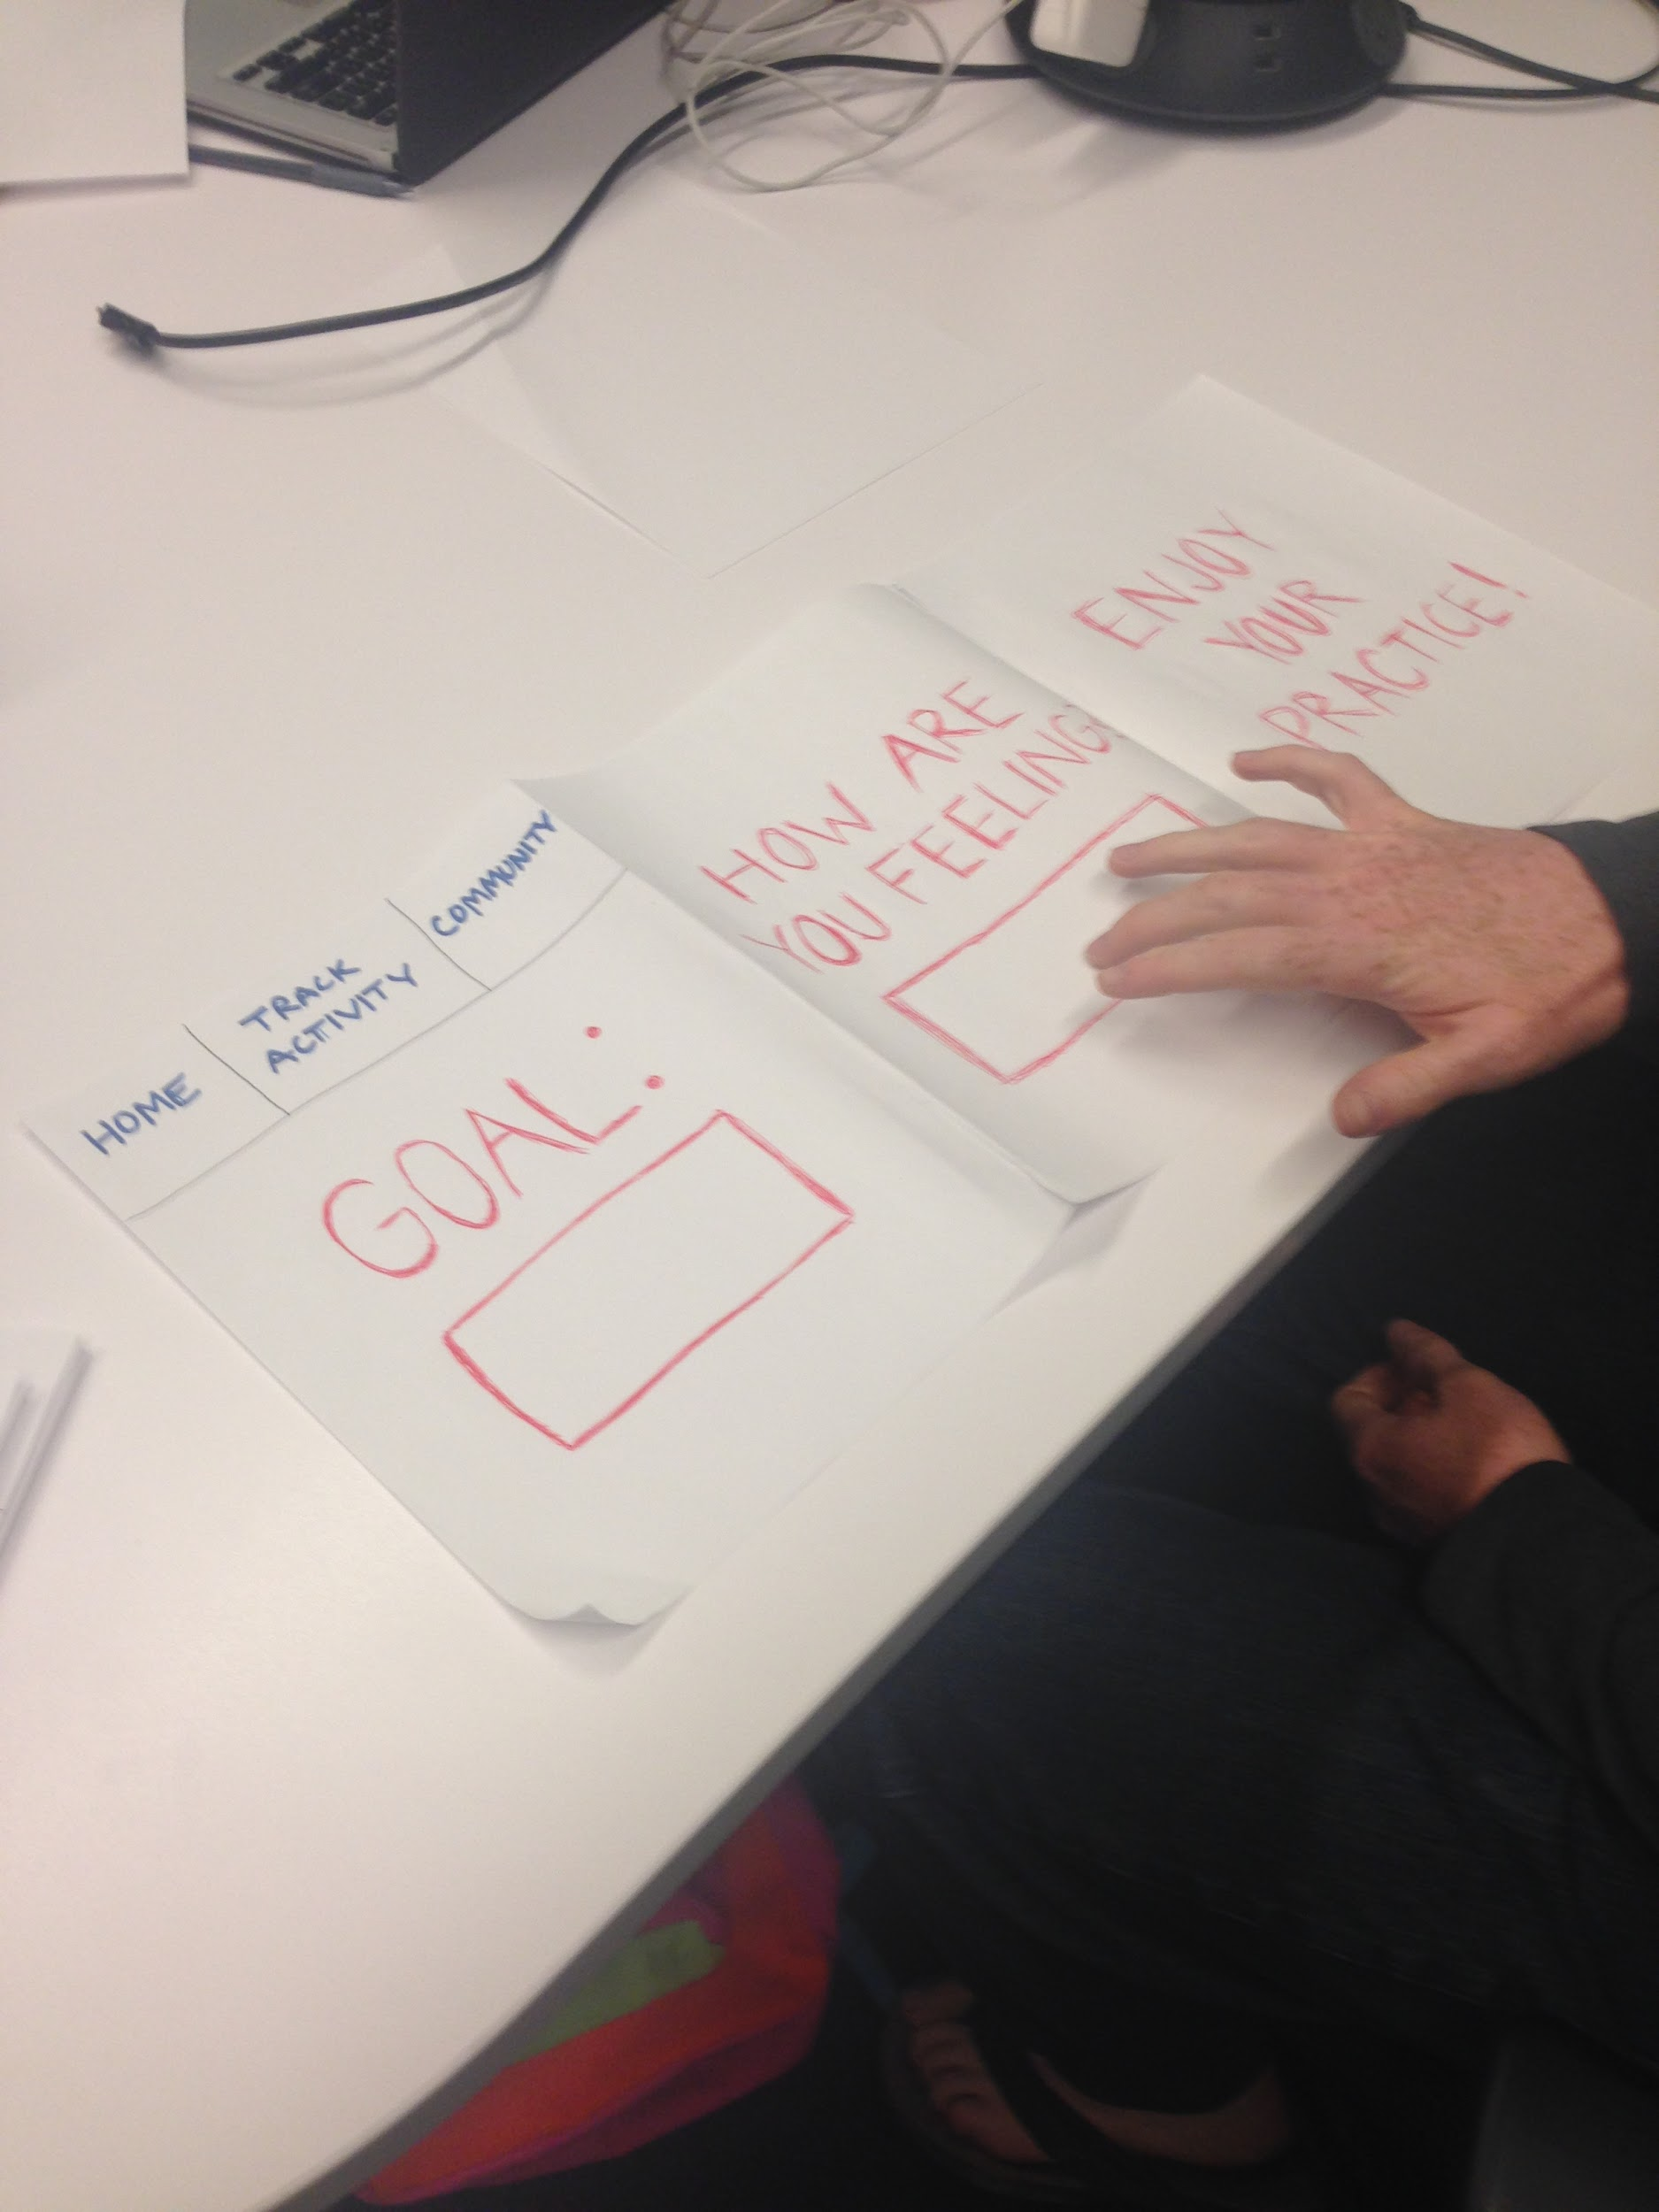 HOME
TRACK
ACTIVITY
COMMUNITY
GOAL:
HOW ARE
YOU FEELING?
ENJOY
YOUR
PRACTICE!